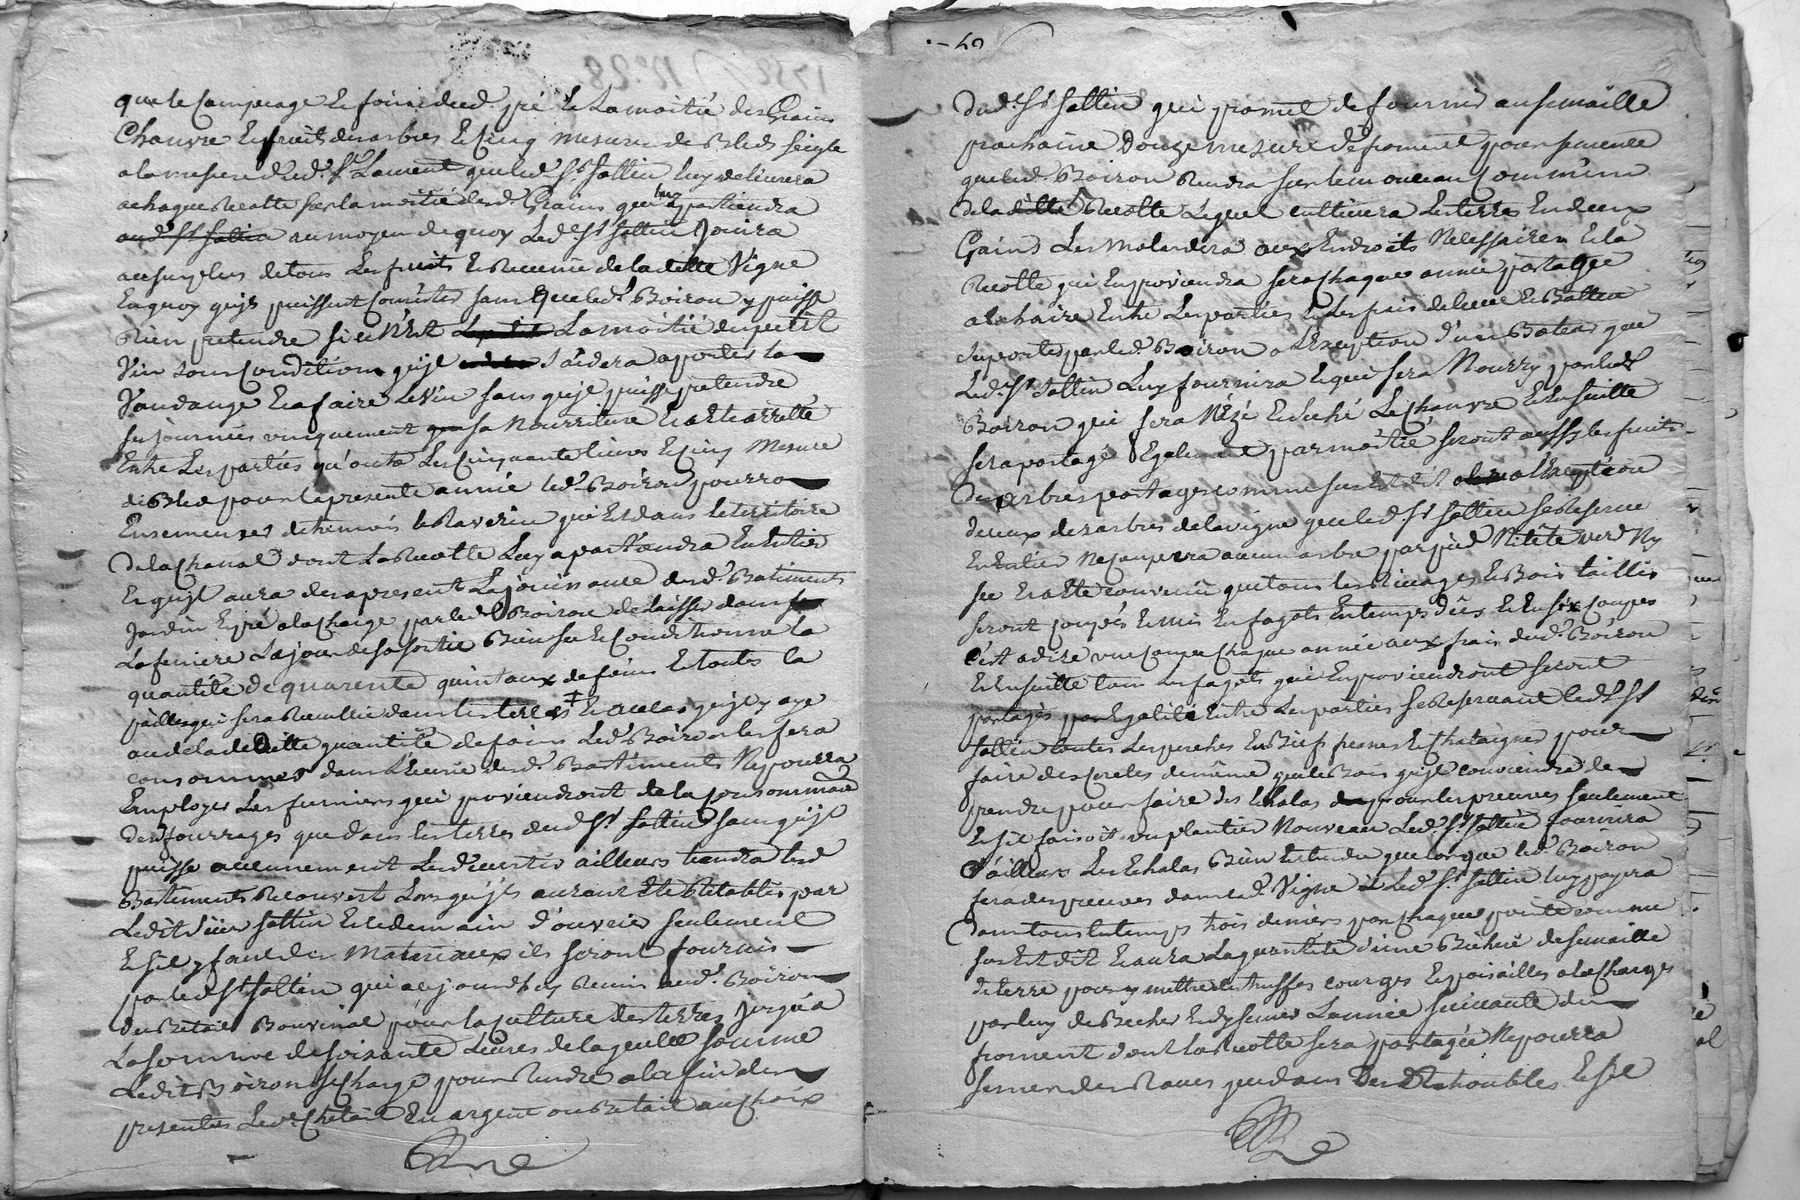 que le Campeage et foin dud. pré et La moitié des Grains
Chanvre et fruit des arbres et Cinq mesures de Bled seigle
a la mesure dud. St. Laurent que led. Sr. sattin luy delivrera
a chaque Recotte sur la moitié desd. Grains qui luy apartiendra
aud. Sr. sattin au moyen de quoy Led. Sr. sattin Jouira
au surplus de tous Les fruits et Recorue de lad. Vigne
En quoy quils puissent Consister sans que led. Boiron y puisse
Rien pretendre si ce n'Est La moitié du petit
Vin sous Condition quil s'aidera a porter La
Vandange Et a faire Le Vin sans quil puisse pretendre
ses journées uniquement sa Nourriture Et a Eté arretté
Entre Les parties qu'outre Les Cinquante livres et Cinq Mesure
de Bled pour la presente année led. Boiron pourra
Ensemencer de tremois la Raverie qui Est dans le territoire
de la Chanal dont La Recotte Luy apartiendra En Entier
Et quil aura des a present La jouissance desd. Batiments
Jardin Et pré a la charge par led. Boiron de laisser dans
La feniere Le jour de sa sortie Bien sec Et Conditionné la
quantité de quarente quintaux de foins Et toutes la
pailles qui sera Recuillie dans les terres Et au cas quil y aye
au dela de ditte quantité de foins Led. Boiron les fera
consommer dans L'Ecurie desd. Bastiments Ne pourra
Employer Les fumiers qui proviendront de la Consommaon
desd. fourrages que dans les terres dud. Sr. sattin sans quil
puisse aucunement Les divertir ailleurs tiendra lesd.
Bastiments Recouvert Lors quils auront Eté Retablis par
Ledit Sieur sattin Et le demain d'ouvrier seulement
Et sil y faut des Materiaux ils seront fournis
par led. Sr. sattin qui a cejourdhuy Remis aud. Boiron
du Betail Bouvinal pour la Culture des terres Jusqu'a
La somme de soixante Livres de laquelle somme
Ledit Boiron se charge pour Rendre a la fin des
presentes Led. Chetail En argent ou Betail au Choix
dud. Sr. sattin qui promet de fournir au semaille
prochaine Douze mesure de froment pour semence
que led. Boiron Rendra sur le monceau Commun
de la ditte Recotte Lequel cultivera Les terres En deux
Grains Les Malendera aux Endroits Necessaires Et la
Recotte qui En proviendra sera chaque année partagée
a l'haire Entre Les parties Et Les frais de levée Et Batteu
suportés par led. Boiron a L'Exeption d'un Bateur que
Led. Sr. sattin Luy fournira Et qui sera Nourry par led.
Boiron qui sera Nézé Et seché Le Chanvre Et Ensuitte
sera partagé Egalement par moitié seront aussy les fruits
des arbres partagés comme sus Est dit a L'Exeption
de ceux des arbres de la vigne que led. Sr. sattin se Reserve
En Entier Ne coupera aucun arbre par pied Ni tete verd Ny
sec Et a Eté convenu que tous les Rivages Et Bois taillis
seront coupés Et mis En fagots En temps dus Et En six Coupes
c'Est a dire une Coupe Chaque année aux frais dud. Boiron
Et Ensuitte tous Les fagots qui En proviendront seront
partagés par Egalité Entre Les parties se Reservant led. Sr.
sattin toutes Les perches En Bief fresnes Et Chataignes pour
faire des Cercles de même que le Bois quil conviendra de
prendre pour faire des Echalas pour les preuves seulement
Et sil faisoit un plantier Nouveau Led. Sr. sattin fournira
d'ailleurs Les Echalas Bien Entendu que lorsque led. Boiron
fera des preuves dans lad. Vigne Led. Sr. sattin luy payera
dans tous les temps trois deniers par chaque pointe comme
sus Est dit Et aura La quantité d'une Bichée de semaille
de terre pour y mettre des truffes courges Et poisailles a la Charge
par luy de Becher Et dy semer L'année suivante du
froment dont la Recotte sera partagée Ne pourra
semer des Raves que dans Des Etoubles Et sil